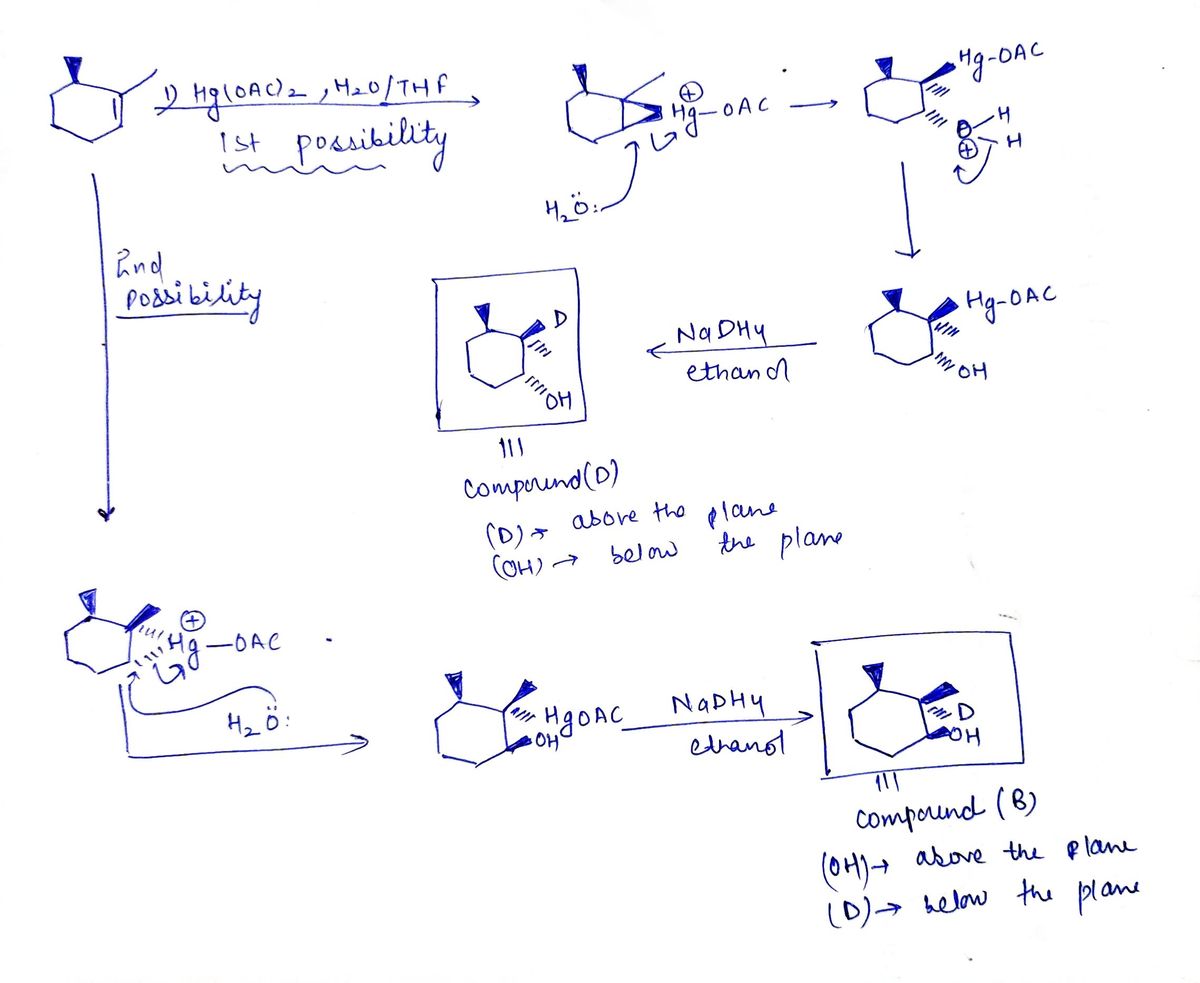 1) Hg(OAC)2, H2O/THF
1st possibility
⊕
Hg-OAC
H2Ö:
Hg-OAC
O-H
⊕ H
2nd
possibility
Hg-OAC
OH
NaDH4
ethanol
D
OH
III
compound(D)
(D)→ above the plane
(OH)→ below the plane
⊕
Hg-OAC
H2Ö:
HgOAC
OH
NaDH4
ethanol
D
OH
III
compound (B)
(OH)→ above the plane
(D)→ below the plane